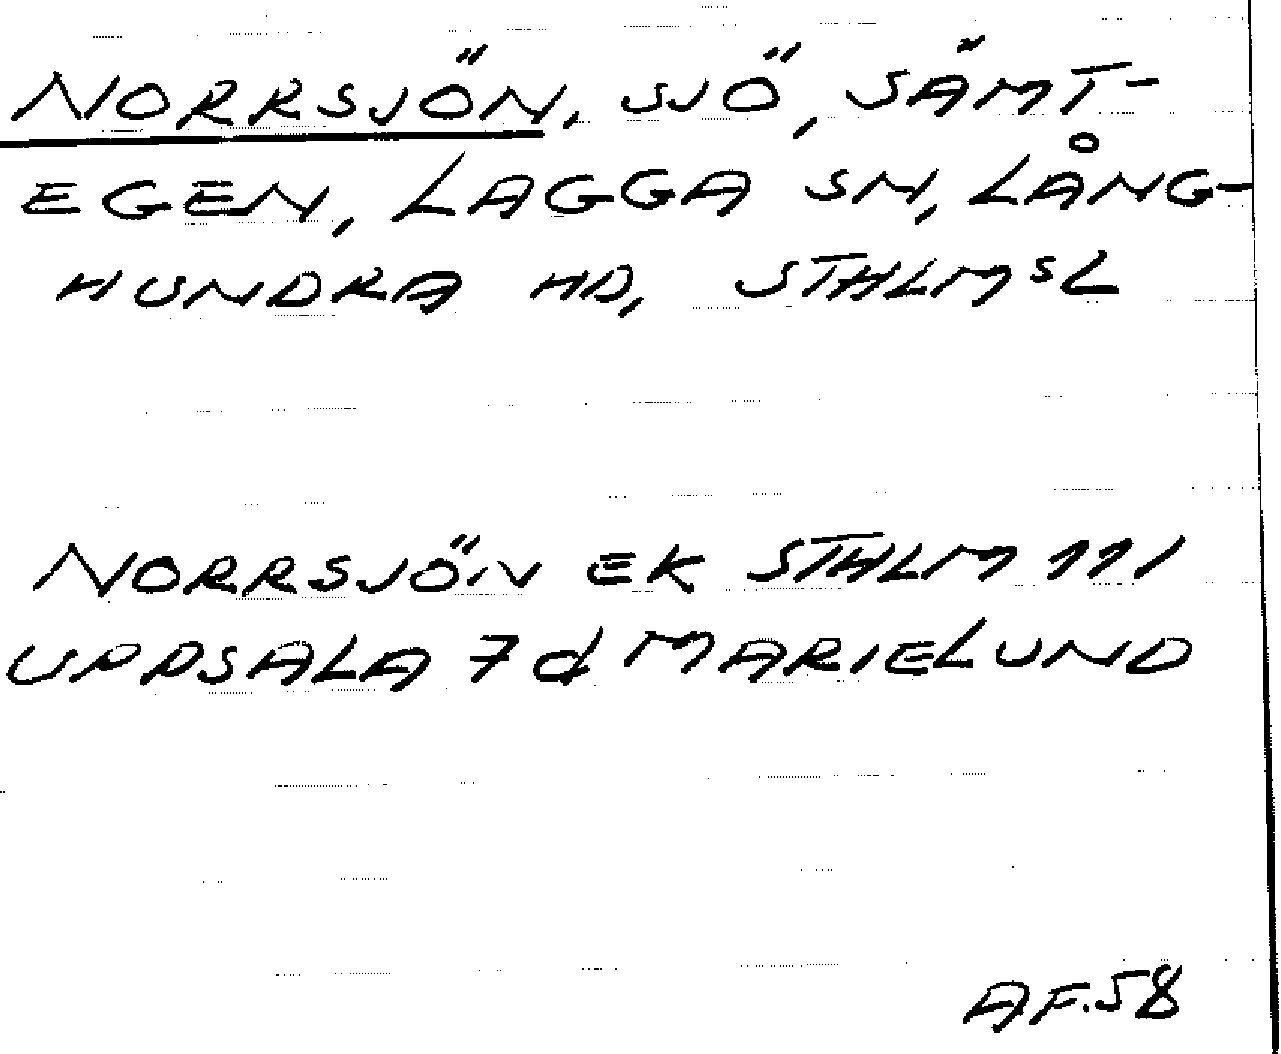 NORRSJÖN, SJÖ, SÄMT-
EGEN, LAGGA SN, LÅNG-
HUNDRA HD, STHLMSL
NORRSJÖN EK STHLM 111
UPPSALA 7d MARIELUND
AF.58